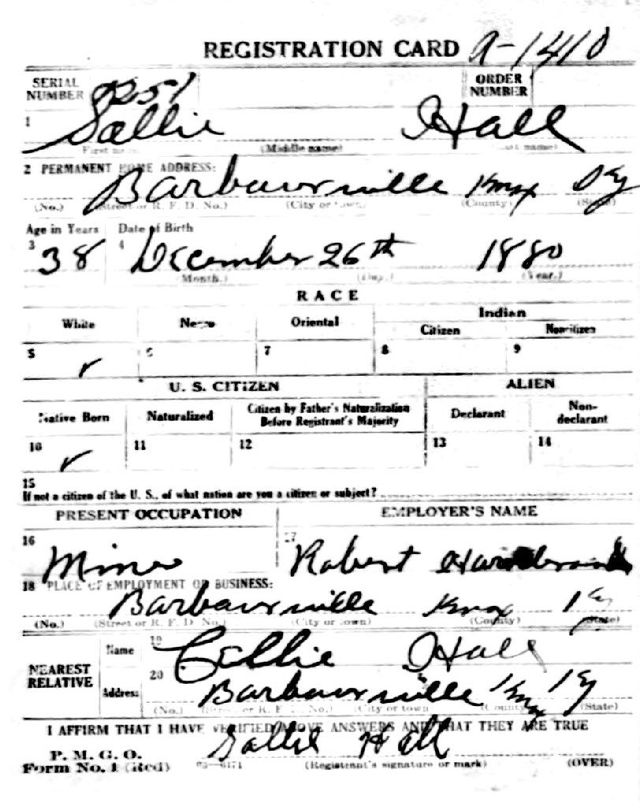 REGISTRATION CARD A-1410
SERIAL NUMBER ORDER NUMBER
1 Sallie Hall
First name (Middle name) Last name)
2 PERMANENT HOME ADDRESS:
Barbourville Knox Ky
(No.) (Street or R. F. D. No.) (City or town) (County) (State)
Age in Years Date of Birth
3 38 4 December 26th 1880
(Month.) (Day.) (Year.)
RACE
White Negro Oriental Indian
Citizen Noncitizen
5 ✓ 6 7 8 9
U. S. CITIZEN ALIEN
Native Born Naturalized Citizen by Father's Naturalization Before Registrant's Majority Declarant Non-declarant
10 ✓ 11 12 13 14
15
If not a citizen of the U. S., of what nation are you a citizen or subject?
PRESENT OCCUPATION EMPLOYER'S NAME
16 Miner 17 Robert
18 PLACE OF EMPLOYMENT OR BUSINESS:
Barbourville Knox Ky
(No.) (Street or R. F. D. No.) (City or town) (County) (State)
NEAREST RELATIVE Name 19 Hall
Address 20 Barbourville Knox Ky
(No.) (Street or R. F. D. No.) (City or town) (County) (State)
I AFFIRM THAT I HAVE VERIFIED ABOVE ANSWERS AND THAT THEY ARE TRUE
Sallie Hall
P. M. G. O.
Form No. 1 (Red) 03-6171 (Registrant's signature or mark) (OVER)